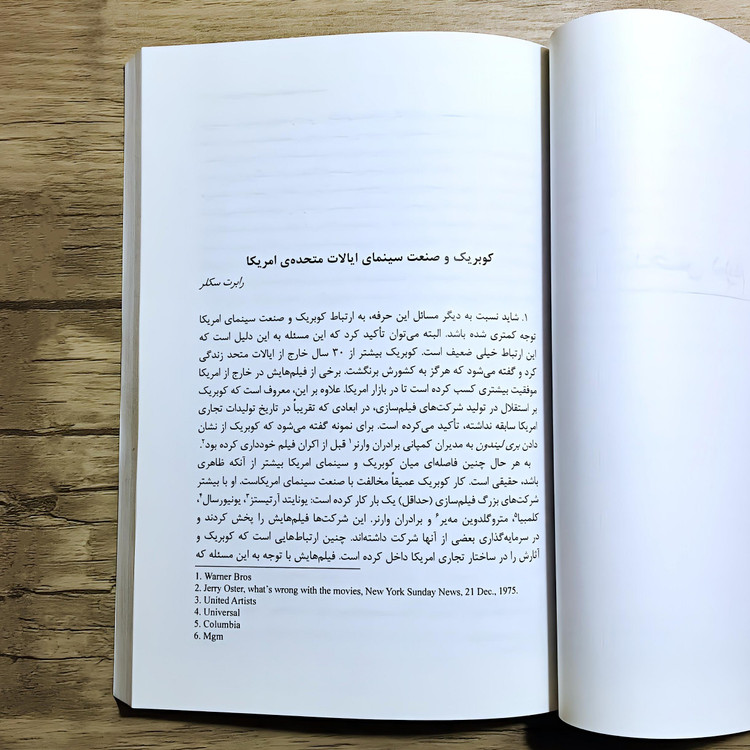 کوبریک و صنعت سینمای ایالات متحده‌ی امریکا
رابرت سکلر
۱. شاید نسبت به دیگر مسائل این حرفه، به ارتباط کوبریک و صنعت سینمای امریکا
توجه کمتری شده باشد. البته می‌توان تأکید کرد که این مسئله به این دلیل است که
این ارتباط خیلی ضعیف است. کوبریک بیشتر از ۳۰ سال خارج از ایالات متحد زندگی
کرد و گفته می‌شود که هرگز به کشورش برنگشت. برخی از فیلم‌هایش در خارج از امریکا
موفقیت بیشتری کسب کرده است تا در بازار امریکا. علاوه بر این، معروف است که کوبریک
بر استقلال در تولید شرکت‌های فیلم‌سازی، در ابعادی که تقریباً در تاریخ تولیدات تجاری
امریکا سابقه نداشته، تأکید می‌کرده است. برای نمونه گفته می‌شود که کوبریک از نشان
دادن بری لیندون به مدیران کمپانی برادران وارنر۱ قبل از اکران فیلم خودداری کرده بود۲.
به هر حال چنین فاصله‌ای میان کوبریک و سینمای امریکا بیشتر از آنکه ظاهری
باشد، حقیقی است. کار کوبریک عمیقاً مخالفت با صنعت سینمای امریکاست. او با بیشتر
شرکت‌های بزرگ فیلم‌سازی (حداقل) یک بار کار کرده است: یونایتد آرتیستز۳، یونیورسال۴،
کلمبیا۵، متروگلدوین مه‌یر۶ و برادران وارنر. این شرکت‌ها فیلم‌هایش را پخش کردند و
در سرمایه‌گذاری بعضی از آنها شرکت داشته‌اند. چنین ارتباط‌هایی است که کوبریک و
آثارش را در ساختار تجاری امریکا داخل کرده است. فیلم‌هایش با توجه به این مسئله که
1. Warner Bros
2. Jerry Oster, what's wrong with the movies, New York Sunday News, 21 Dec., 1975.
3. United Artists
4. Universal
5. Columbia
6. Mgm